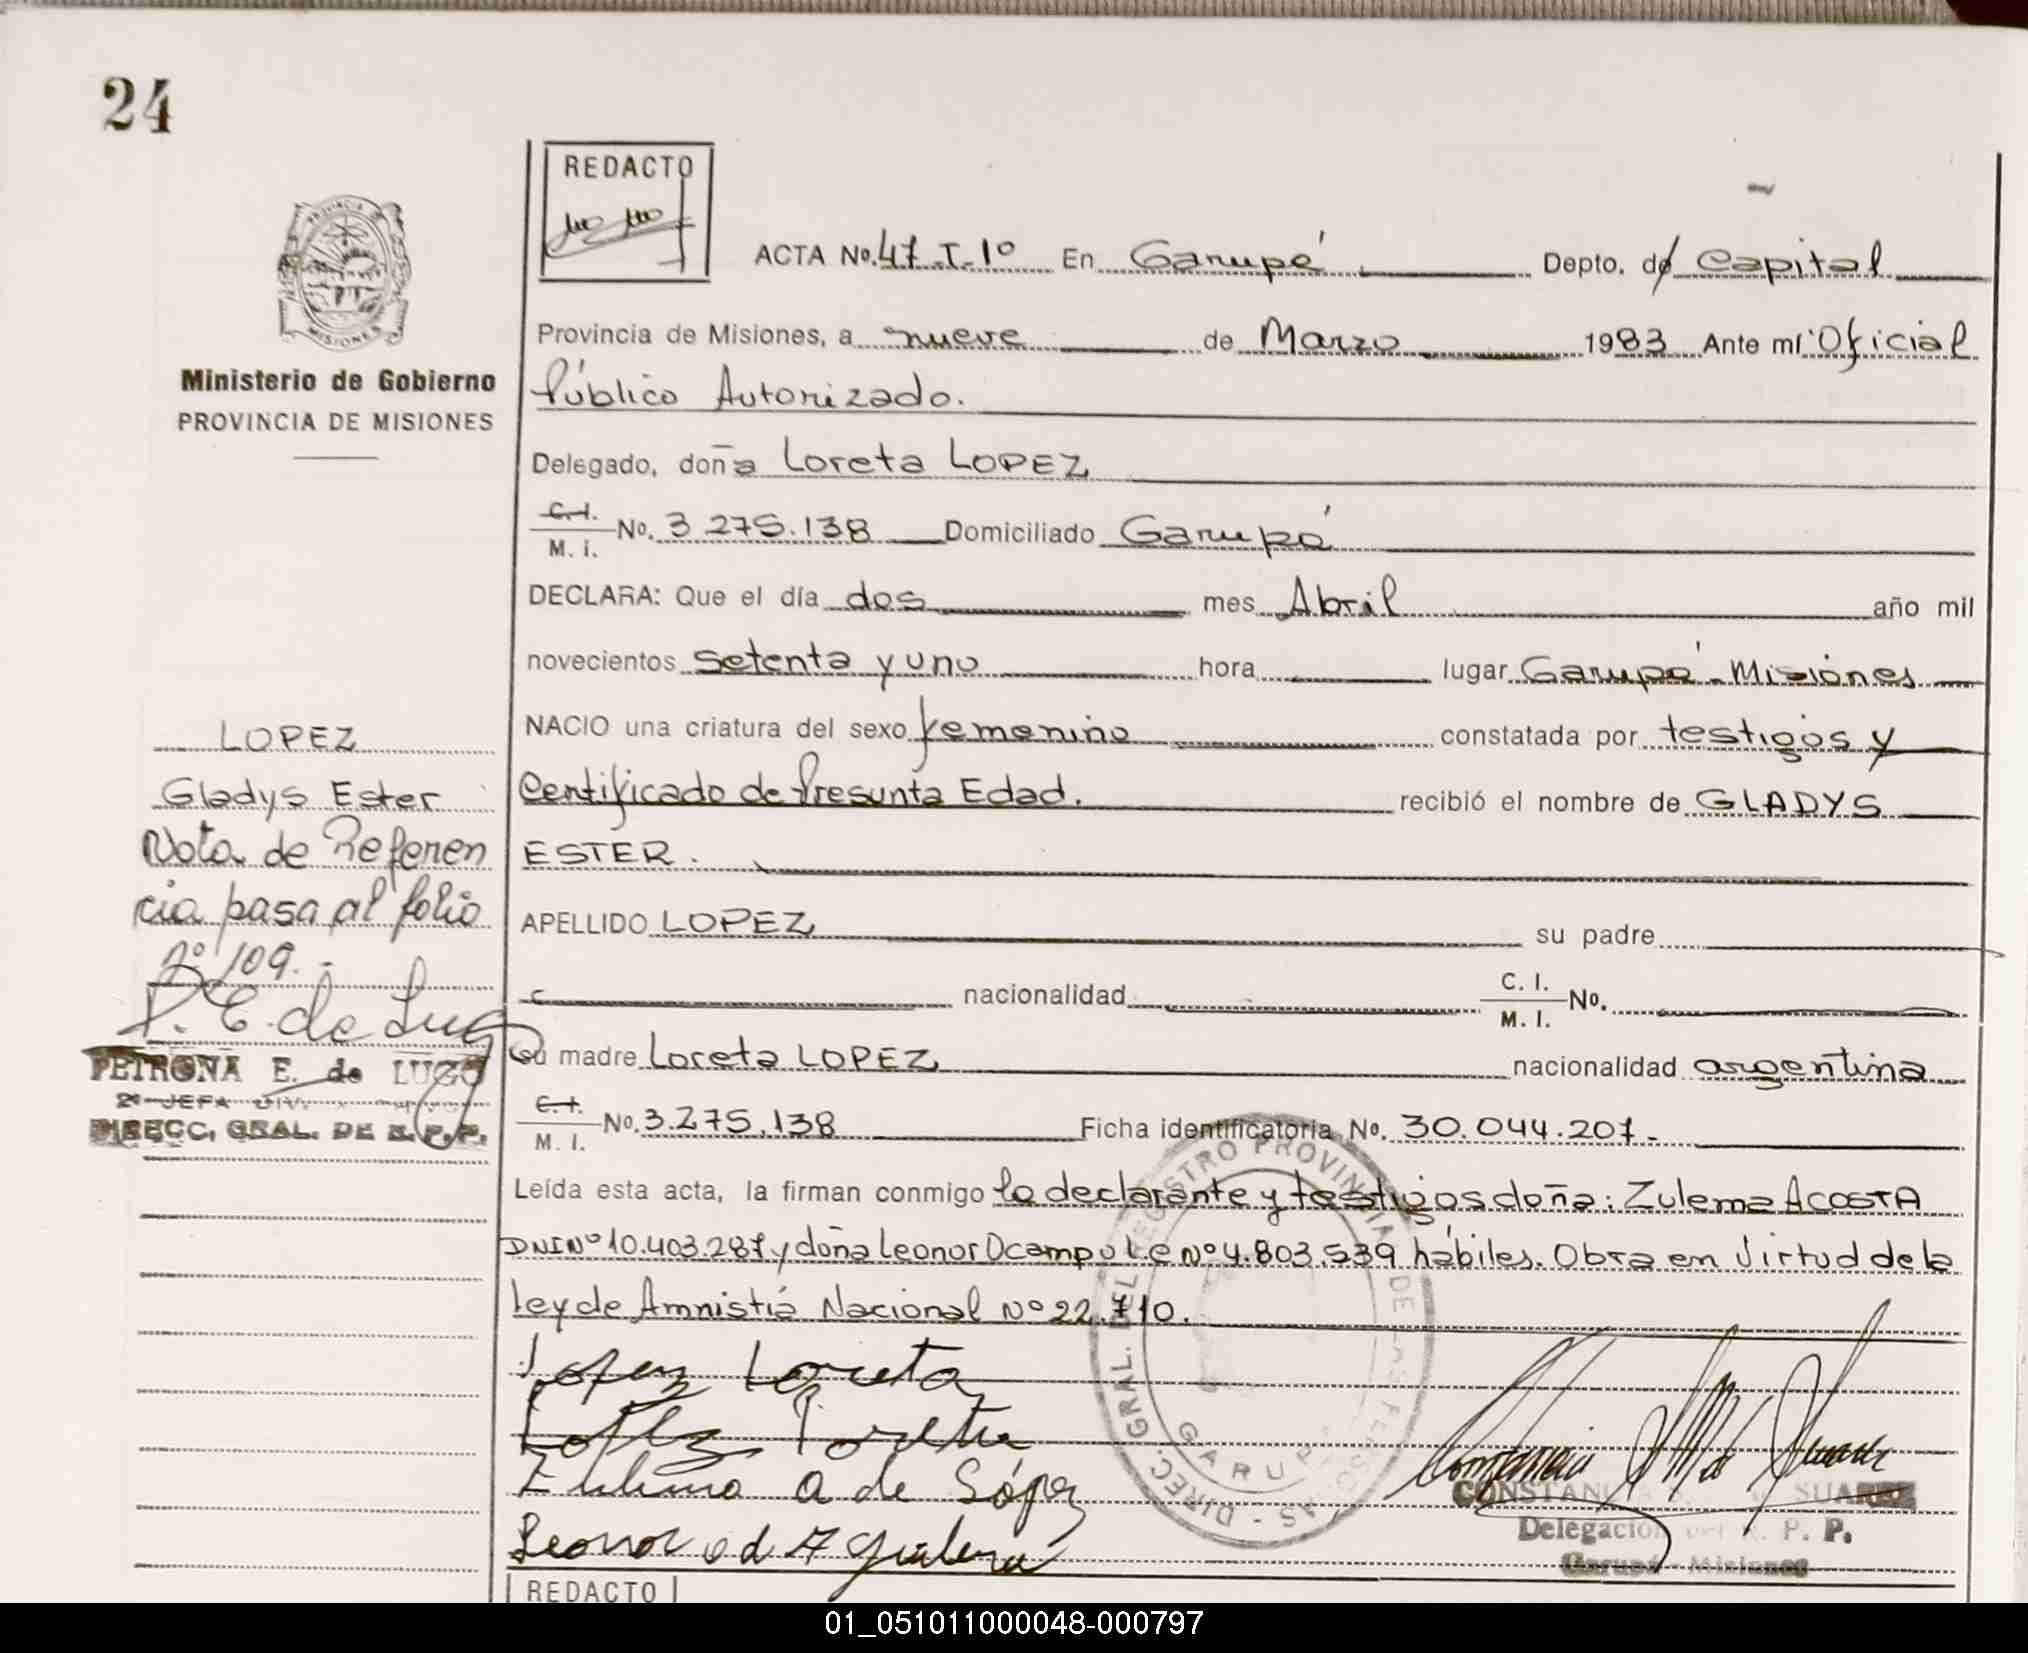 24
REDACTO
ACTA No. 47-T-1º En Garupá Depto. de Capital
Provincia de Misiones, a nueve de Marzo 1983 Ante mí Oficial
Público Autorizado.
Delegado, doña Loreta LOPEZ
C.I. M. i. No. 3.275.138 Domiciliado Garupá
DECLARA: Que el día dos mes Abril año mil
novecientos setenta y uno hora lugar Garupá - Misiones
NACIO una criatura del sexo femenino constatada por testigos y
Certificado de Presunta Edad. recibió el nombre de GLADYS
ESTER.
APELLIDO LOPEZ su padre
nacionalidad C. I. M. I. No.
su madre Loreta LOPEZ nacionalidad argentina
C.I. M. I. No. 3.275.138 Ficha identificatoria No. 30.044.207.-
Leída esta acta, la firman conmigo la declarante y testigos doña: Zulema ACOSTA
DNI Nº 10.403.287 y doña Leonor Ocampo L.E Nº 4.803.539 hábiles. Obra en Virtud de la
ley de Amnistía Nacional Nº 22.710.
Lopez Loreta
Lopez Loreta
a de López
Leonor o d
PROVINCIA DE
MISIONES
Ministerio de Gobierno
PROVINCIA DE MISIONES
LOPEZ
Gladys Ester
Nota de Referen
cia pasa al folio
Nº 109.-
P. E. de Lugo
PETRONA E. de LUGO
2º JEFA DIV.
DIRECC. GRAL. DE R.P.P.
DIREC. GRAL. DEL REGISTRO PROVINCIAL DE LAS PERSONAS -
GARUPA
SUAREZ
Delegación del R. P. P.
Garupá - Misiones
REDACTO
01_051011000048-000797